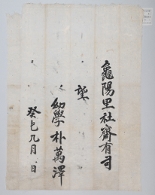 龜陽里社齋有司
望
幼學朴萬澤
癸巳九月 日